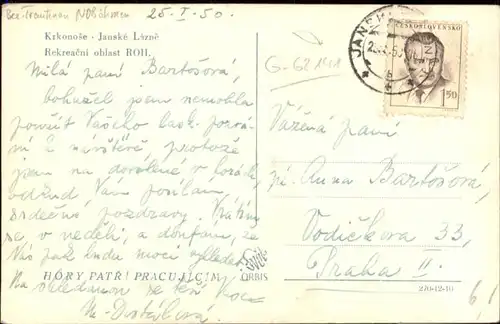 Bez. Trautenau NOBöhmen 25.I.50.
Krkonoše - Janské Lázně
Rekreační oblast ROH.
G-62141
Milá paní Bartošová,
bohužel jsem nemohla
použít Vašeho lask. pozvá-
ní k návštěvě, protože
jsem na dovolené v horách,
odkud Vám posílám
srdečné pozdravy. Vrátím
se v neděli, a doufám, že
Vás pak budu moci
Na shledanou se těší Vaše
M. Dostálová.
HÓRY PATŘÍ PRACUJÍCÍM
ORBIS
270-12-10
Vážená paní
pí. Anna Bartošová,
Vodičkova 33,
Praha II.
1.50
6/1